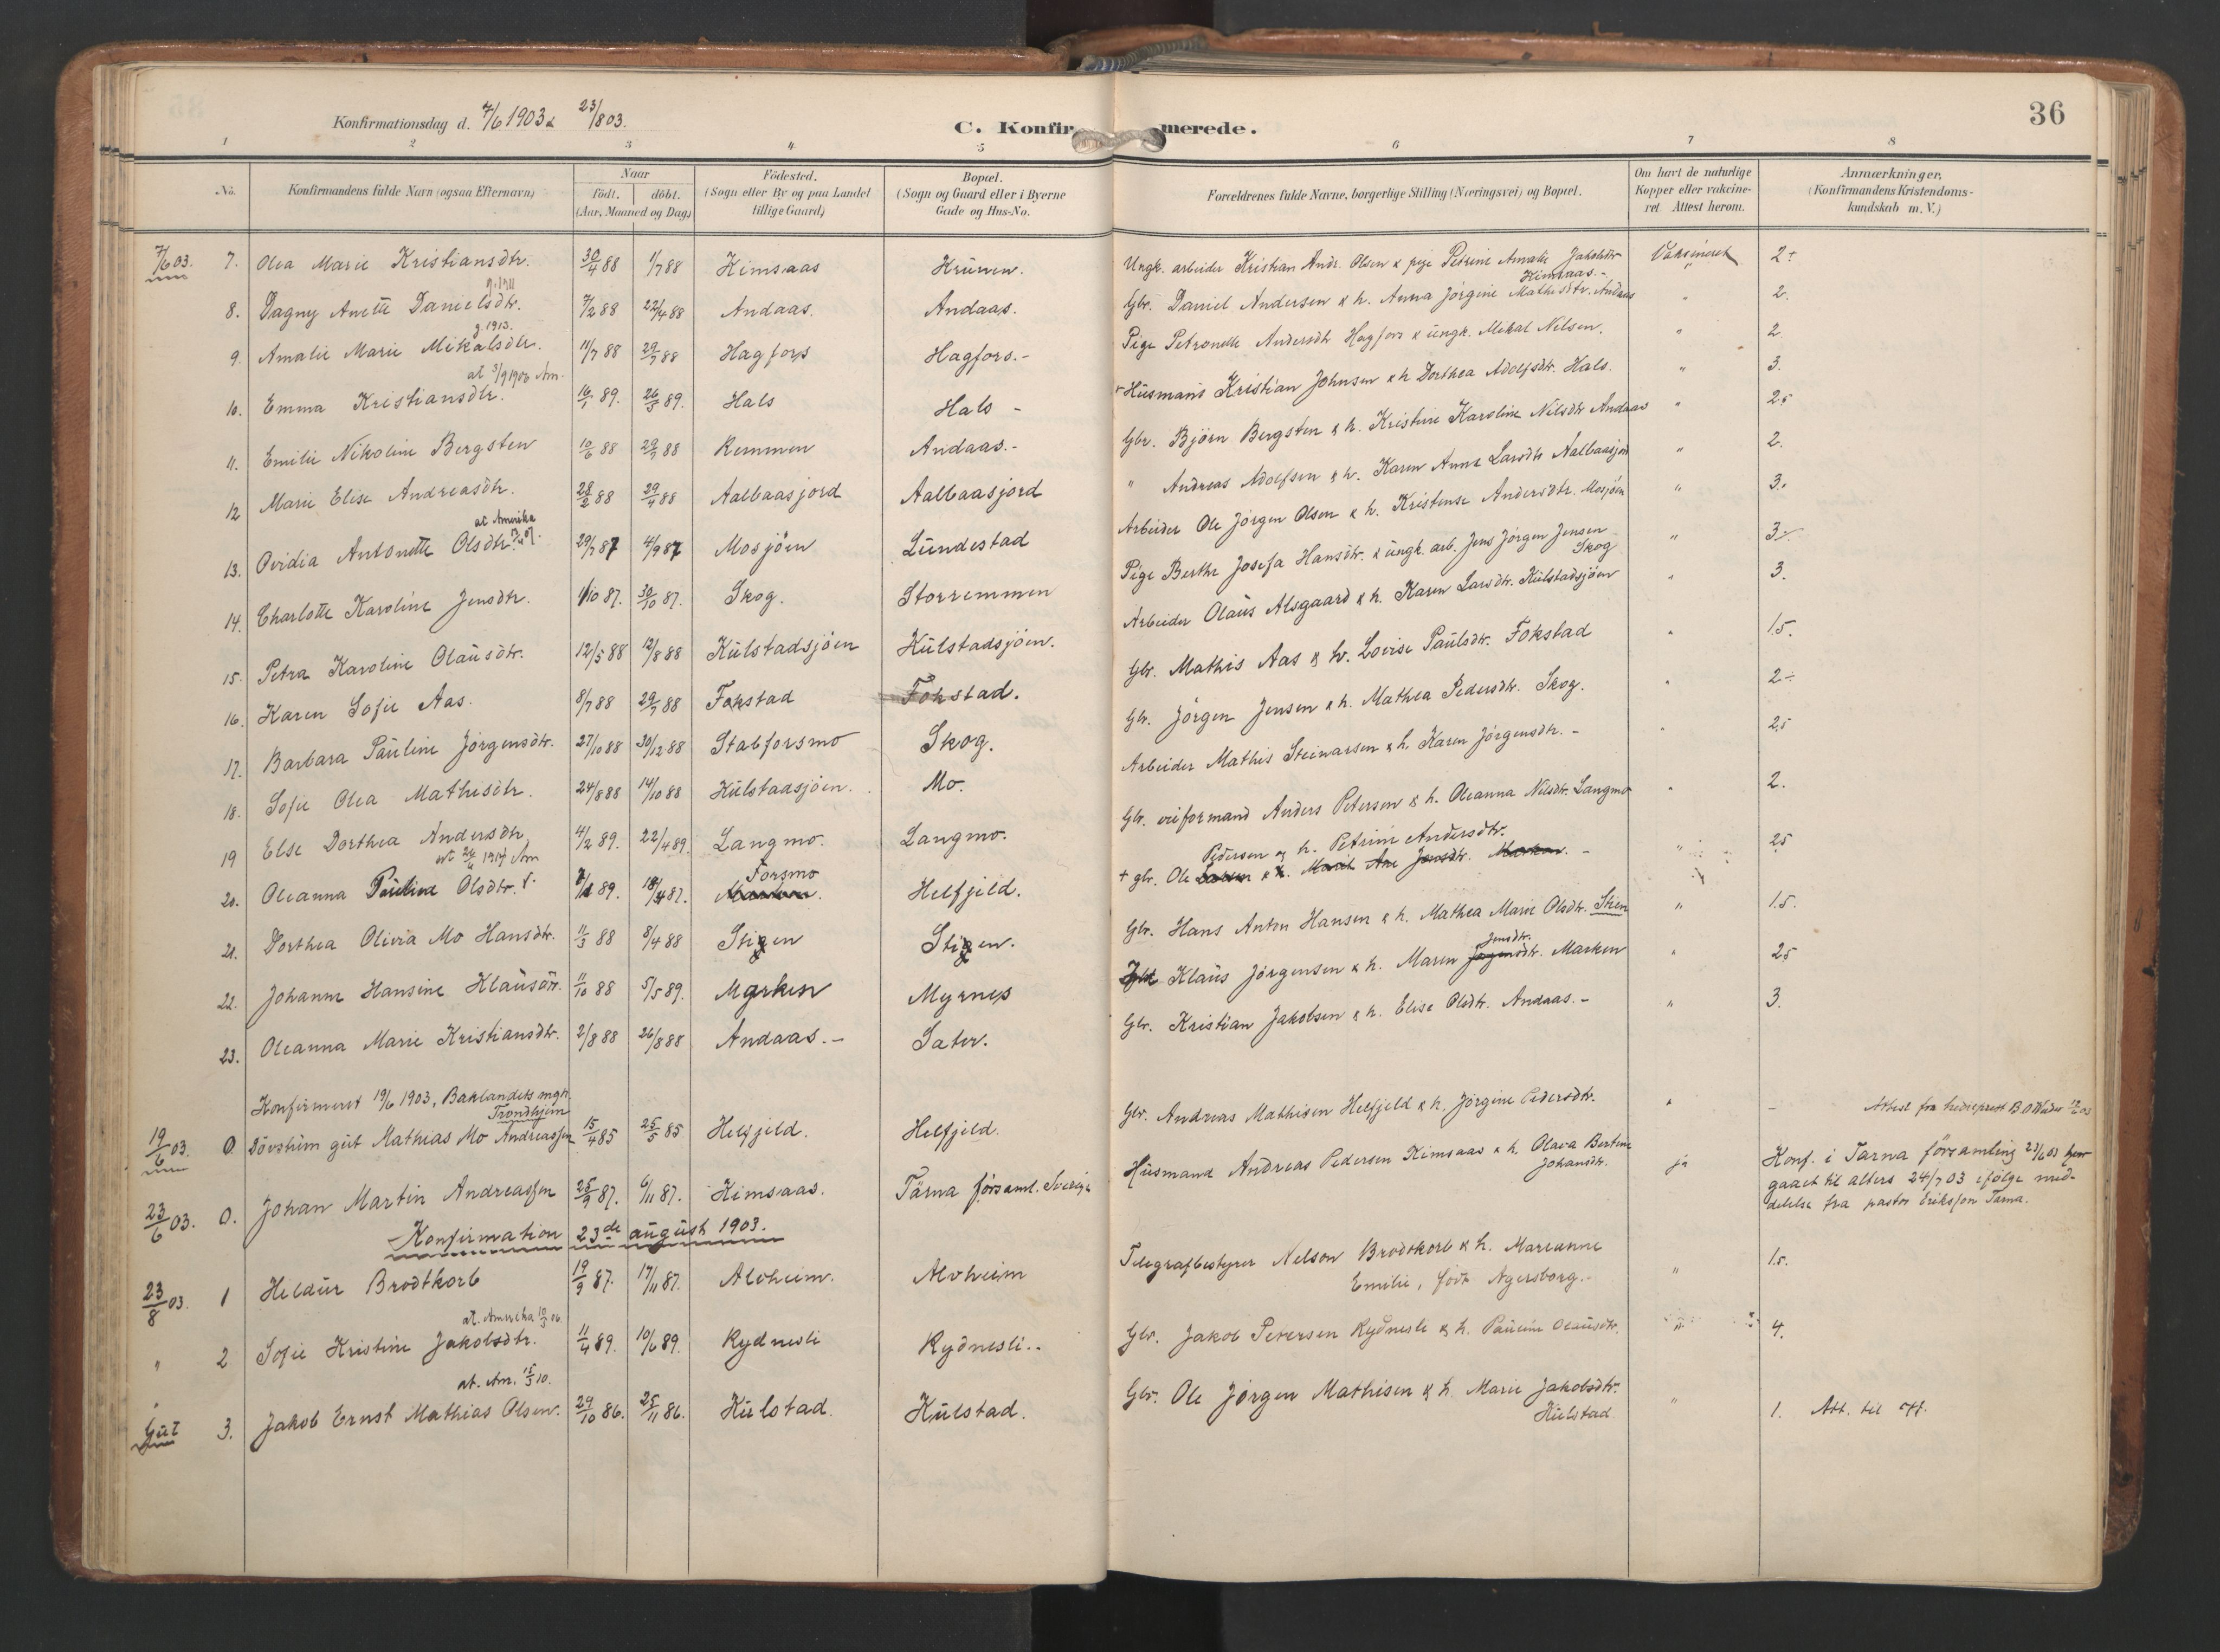 Konfirmationsdag d. 7/6 1903 & 23/8 03.
C. Konfirmerede.
36
1 2 3 4 5 6 7 8
No. Konfirmandens fulde Navn (ogsaa Efternavn) Naar födt. döbt. (Aar, Maaned og Dag) Födested. (Sogn eller By og paa Landet tillige Gaard) Bopæl. (Sogn og Gaard eller i Byerne Gade og Hus-No. Forældrenes fulde Navne, borgerlige Stilling (Næringsvei) og Bopæl. Om havt de naturlige Kopper eller vakcineret Attest herom. Anmærkninger. (Konfirmandens Kristendomskundskab m. V.)
7/6 03. 7. Olea Marie Kristiansdtr. 30/4 88 1/7 88 Kimsaas Ungk. arbeider Kristian Andr. Olsen & pige Petrine Amalie Jakobsdtr Kimsaas.- Vaksineret 2+
8. Dagny Anette Danielsdtr. 7/2 88 22/4 88 Andaas. Andaas. Gbr. Daniel Andersen & h. Anna Jörgine Mathisdtr. Andaas " 2.
g. 1913.
9. Amalie Marie Mikalsdtr. 11/7 88 29/7 88 Hagfors Hagfors.- Pige Petronelle Andersdtr Hagfors & ungk. Mikal Nilsen. " 2
at 3/9 1903 Am.
10. Emma Kristiansdtr. 16/1 89. 26/5 89. Hals Hals - Husmans Kristian Johnsen & h Dorthea Adolfsdtr. Hals. " 3.
11. Emilie Nikoline Bergsten 10/6 88 29/7 88 Remmen Andaas.- Gbr. Björn Bergsten & h. Kristine Karoline Nilsdtr Andaas " 2.5
12 Marie Elise Andreasdtr. 28/2 88 29/4 88 Aalbaasjord Aalbaasjord " Andreas Adolfsen & h. Karen Anna Larsdtr Aalbaasjord " 2.
at Amerika
13. Ovidia Antonette Olsdtr. 29/7 87 4/9 87 Mosjöen Lundestad Arbeider Ole Jörgen Olsen & h. Kristense Andersdtr. Mosjöen " 3.
14. Charlotte Karoline Jensdtr. 1/10 87. 30/10 87. Skog. Storremmen Pige Berthe Josefa Hansdtr. & ungk. arb. Jens Jörgen Jensen Skog " 3
15. Petra Karoline Olausdtr. 12/5 88 12/8 88 Kulstadsjöen Kulstadsjöen. Arbeider Olaus Alsgaard & h. Karen Larsdtr. Kulstadsjöen " 3.
16. Karen Sofie Aas. 8/7 88 29/7 88 Fokstad Fokstad. Gbr. Mathis Aas & h. Lovise Paulsdtr. Fokstad " 1.5.
17. Barbara Pauline Jörgensdtr. 27/10 88 30/12 88 Stabforsmo Skog. Gbr. Jörgen Jensen & h. Mathea Pedersdtr. Skog. " 2÷
18. Sofie Olea Mathisdtr. 24/8 88 14/10 88 Kulstadsjöen. Mo. Arbeider Mathis Steinarsen & h. Karen Jörgensdtr. - " 2.5
19 Else Dorthea Andersdtr. 4/2 89. 22/4 89. Langmo. Langmo. Gbr. veiformand Anders Petersen & h. Oleanna Nilsdtr. Langmo " 2.
Forsmo Pedersen og h. Petrine Andersdtr.
20. Oleanna Pauline Olsdtr. Helfjeld. + gbr. Ole & h. Marit Ane Jensdtr. Marken. - " 2.5
21. Dorthea Olivia Mo Hansdtr. 11/3 88 8/4 88 Stien Stien. Gbr. Hans Anton Hansen & h. Mathea Marie Olsdtr. Stien " 1.5.
Jensdtr.
22. Johanne Hansine Klausdtr. 11/10 88 5/5 89. Marken Myrnes Klaus Jörgensen & h. Maren Jörgensdtr. Marken " 2.5
23. Oleanna Marie Kristiansdtr. 2/8 88 26/8 88 Andaas.- Sater. Gbr. Kristian Jakobsen & h. Elise Olsdtr. Andaas.- " 3.
Konfirmeret 19/6 1903, Baklandets mgh. Trondhjem
19/6 03. 0. Dövstum gut Mathias Mo Andreassen 15/4 85 25/5 85 Helfjeld. Helfjeld. Gbr. Andreas Mathisen Helfjeld & h. Jörgine Pedersdtr. " - Attest fra
23/6 03. 0. Johan Martin Andreassen 25/9 87. 6/11 87. Kimsaas. Tärna församl. Sverige Husmand Andreas Pedersen Kimsaas & h. Olava Bertine Johansdtr. ja Konf. i Tarna församling 23/6 03
gaaet til alters 24/7 03 ifölge meddelelse fra pastor Eriksson Tarna.
Konfirmation 23de august 1903.
23/8 03. 1 Heldur Brodtkorb 19/9 87. 17/11 87. Alvheim. Alvheim Telegrafbestyrer Nelson Brodtkorb & h. Marianne Emilie, född Agersborg.- " 1.5.
at. Amerika
" 2 Sofie Kristine Jakobsdtr. 11/4 89. 10/6 89. Rydnesli Rydnesli.. Gbr. Jakob Petersen Rydnesli & h. Pauline Olausdtr. " 4.
at. Am. 15/3 10.
Gut 3. Jakob Ernst Mathias Olsen. 29/10 86. 25/11 86. Kulstad. Kulstad. Gbr. Ole Jörgen Mathisen & h. Marie Jakobsdtr. Kulstad " 1. Att. til